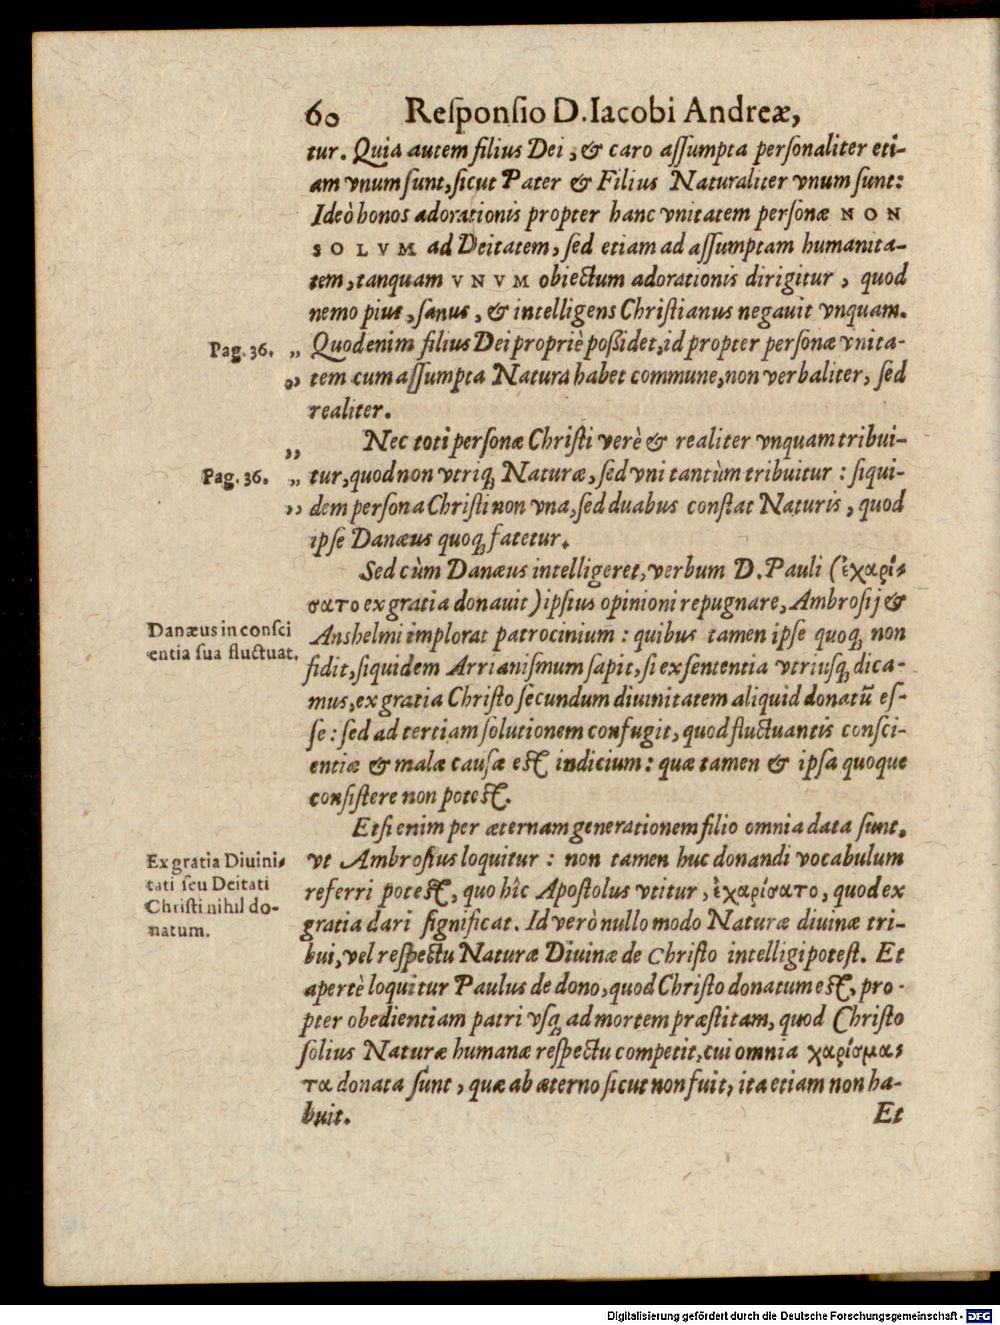 60 Reſponſio D. Iacobi Andreæ,
tur. Quia autem filius Dei, & caro aſſumpta perſonaliter eti-
am vnum ſunt, ſicut Pater & Filius Naturaliter vnum ſunt:
Ideò honos adorationis propter hanc vnitatem perſonæ NON
SOLVM ad Deitatem, ſed etiam ad aſſumptam humanita-
tem, tanquam VNVM obiectum adorationis dirigitur, quod
nemo pius, ſanus, & intelligens Chriſtianus negauit vnquam.
Pag. 36. „ Quod enim filius Dei propriè poßidet, id propter perſonæ vnita-
„ tem cum aſſumpta Natura habet commune, non verbaliter, ſed
realiter.
„ Nec toti perſonæ Chriſti verè & realiter vnquam tribui-
Pag. 36. „ tur, quod non vtriq; Naturæ, ſed vni tantùm tribuitur: ſiqui-
„ dem perſona Chriſti non vna, ſed duabus conſtat Naturis, quod
ipſe Danæus quoq; fatetur.
Sed cùm Danæus intelligeret, verbum D. Pauli (ἐχαρί-
σατο ex gratia donauit) ipſius opinioni repugnare, Ambroſij &
Danæus in conſci
entia ſua fluctuat.
Anshelmi implorat patrocinium: quibus tamen ipſe quoq; non
fidit, ſiquidem Arrianiſmum ſapit, ſi ex ſententia vtriuſq; dica-
mus, ex gratia Chriſto ſecundum diuinitatem aliquid donatū eſ-
ſe: ſed ad tertiam ſolutionem confugit, quod fluctuantis conſci-
entiæ & malæ cauſæ eſt indicium: quæ tamen & ipſa quoque
conſiſtere non poteſt.
Etſi enim per æternam generationem filio omnia data ſunt,
Ex gratia Diuini-
tati ſeu Deitati
Chriſti nihil do-
natum.
vt Ambroſius loquitur: non tamen huc donandi vocabulum
referri poteſt, quo hîc Apoſtolus vtitur, ἐχαρίσατο, quod ex
gratia dari ſignificat. Id verò nullo modo Naturæ diuinæ tri-
bui, vel reſpectu Naturæ Diuinæ de Chriſto intelligi poteſt. Et
apertè loquitur Paulus de dono, quod Chriſto donatum eſt, pro-
pter obedientiam patri vſq; ad mortem præſtitam, quod Chriſto
ſolius Naturæ humanæ reſpectu competit, cui omnia χαρίσμα-
τα donata ſunt, quæ ab æterno ſicut non fuit, ita etiam non ha-
buit.
Et
Digitalisierung gefördert durch die Deutsche Forschungsgemeinschaft - DFG